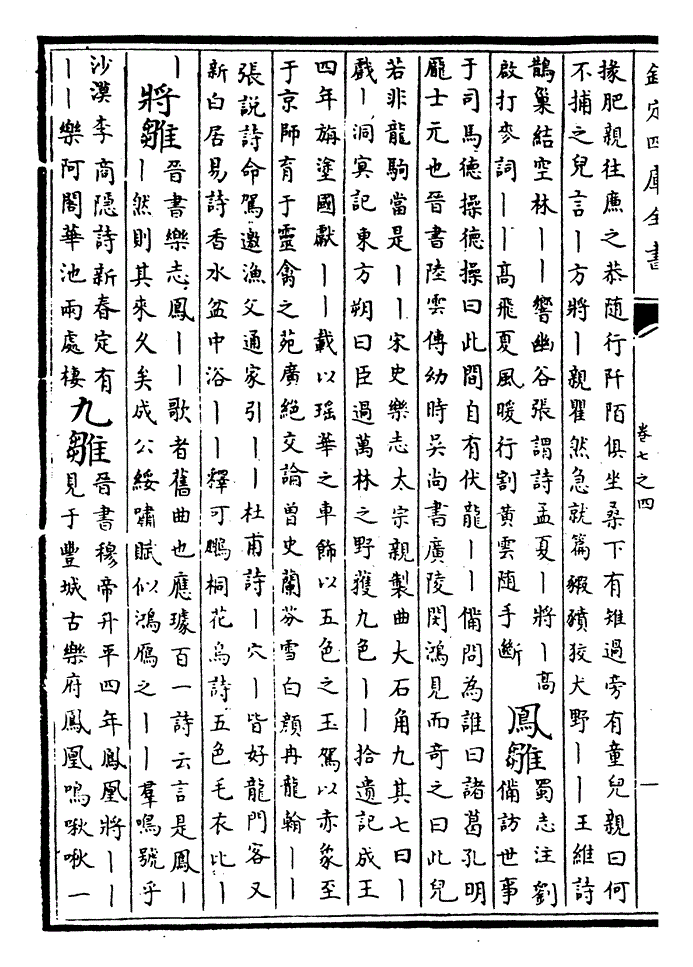 欽定四庫全書
卷七之四
一
掾肥親往廉之恭随行阡陌俱坐桑下有雉過旁有童兒親曰何
不捕之兒言丨方將丨親瞿然急就篇豭豶狡犬野丨丨王維詩
鵲巢結空林丨丨響幽谷張謂詩孟夏丨將丨高
啟打麥詞丨丨高飛夏風暖行割黃雲随手斷
鳳雛
蜀志注劉
備訪世事
于司馬德操德操曰此間自有伏龍丨丨備問為誰曰諸葛孔明
龐士元也晉書陸雲傳幼時吳尚書廣陵閔鴻見而奇之曰此兒
若非龍駒當是丨丨宋史樂志太宗親製曲大石角九其七曰丨
戲丨洞冥記東方朔曰臣過萬林之野獲九色丨丨拾遺記成王
四年旃塗國獻丨丨載以瑶華之車飾以五色之玉駕以赤象至
于京師育于靈禽之苑廣絶交論曽史蘭芬雪白顔冉龍翰丨丨
張説詩命駕邀漁父通家引丨丨杜甫詩丨穴丨皆好龍門客又
新白居易詩香水盆中浴丨丨釋可鵬桐花烏詩五色毛衣比丨
丨
將雛
晉書樂志鳳丨丨歌者舊曲也應璩百一詩云言是鳳丨
丨然則其來久矣成公綏嘯賦似鴻鴈之丨丨羣鳴號乎
沙漠李商隱詩新春定有
丨丨樂阿閣華池兩處棲
九雛
晉書穆帝升平四年鳳凰將丨丨
見于豐城古樂府鳳凰鳴啾啾一